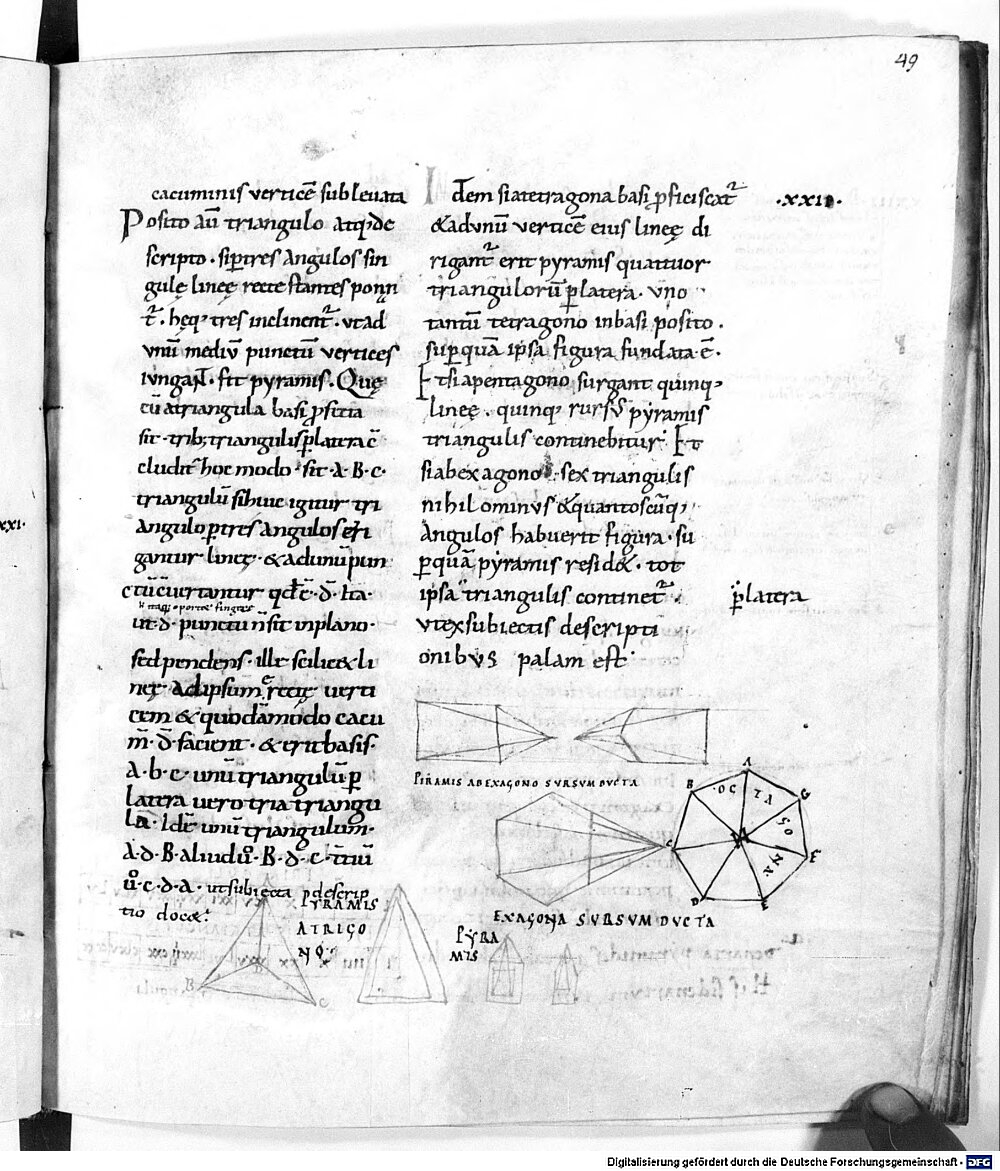 49
cacuminis verticē subleuata
Posito aū triangulo atq; de
scripto · si ꝑ tres angulos sin
gulę lineę recte stantes ponn
t᷑. hęq; tres inclinent᷑. ut ad
unū mediū punctū vertices
iungant · fit pyramis. Quę
cū a triangula basi ꝓfecta
sit · trib; triangulis ꝑ latera cō
cludit᷑ hoc modo · sit · A · B · c ·
triangulū si huic igitur tri
angulo ꝑ tres angulos eri
gantur lineę · & ad unū pun
ctū cōuertantur qd̄ ē · d̄ · Ita ·
ut · d · punctū ñ sit in plano ·
sed pendens · illę scilicet li
neę ad ipsum ęrectę verti
cem & quodāmodo cacu
m̄ · d̄ · facient · & erit basis ·
A · b · c · unū triangulū · ꝑ
latera uero tria triangu
la · Idē unū triangulum ·
A · d · B · aliud ů · B · d · c · t̄tiū
ů · c · d · a · ut subiecta descrip
tio docet
Idem si a tetragona basi ꝓficiscat᷑
·XXII·
& ad unū verticē eius lineę di
rigant᷑ erit pyramis quattuor
triangulorū ꝑ latera · uno
tantū tetragono in basi posito ·
suꝑ quā ipsa figura fundata ē ·
Et si a pentagono surgant quinq;
lineę · quinq; rursus pyramis
triangulis continebitur · Et
si ab exagono · sex triangulis
nihilominus & quantoscūq;
angulos habuerit figura · su
ꝑ quā pyramis resid& · tot
ipsa triangulis continet᷑ ·
ꝑ latera
ut ex subiectis descripti
onibus palam est
PIRAMIS AB EXAGONO SVRSVM DVCTA
A
B
OC
TA
GO
NA
EXAGONA SVRSVM DVCTA
PYRAMIS
A TRIGO
NO
PYRA
MIS
B
C
XXI·
Digitalisierung gefördert durch die Deutsche Forschungsgemeinschaft - DFG